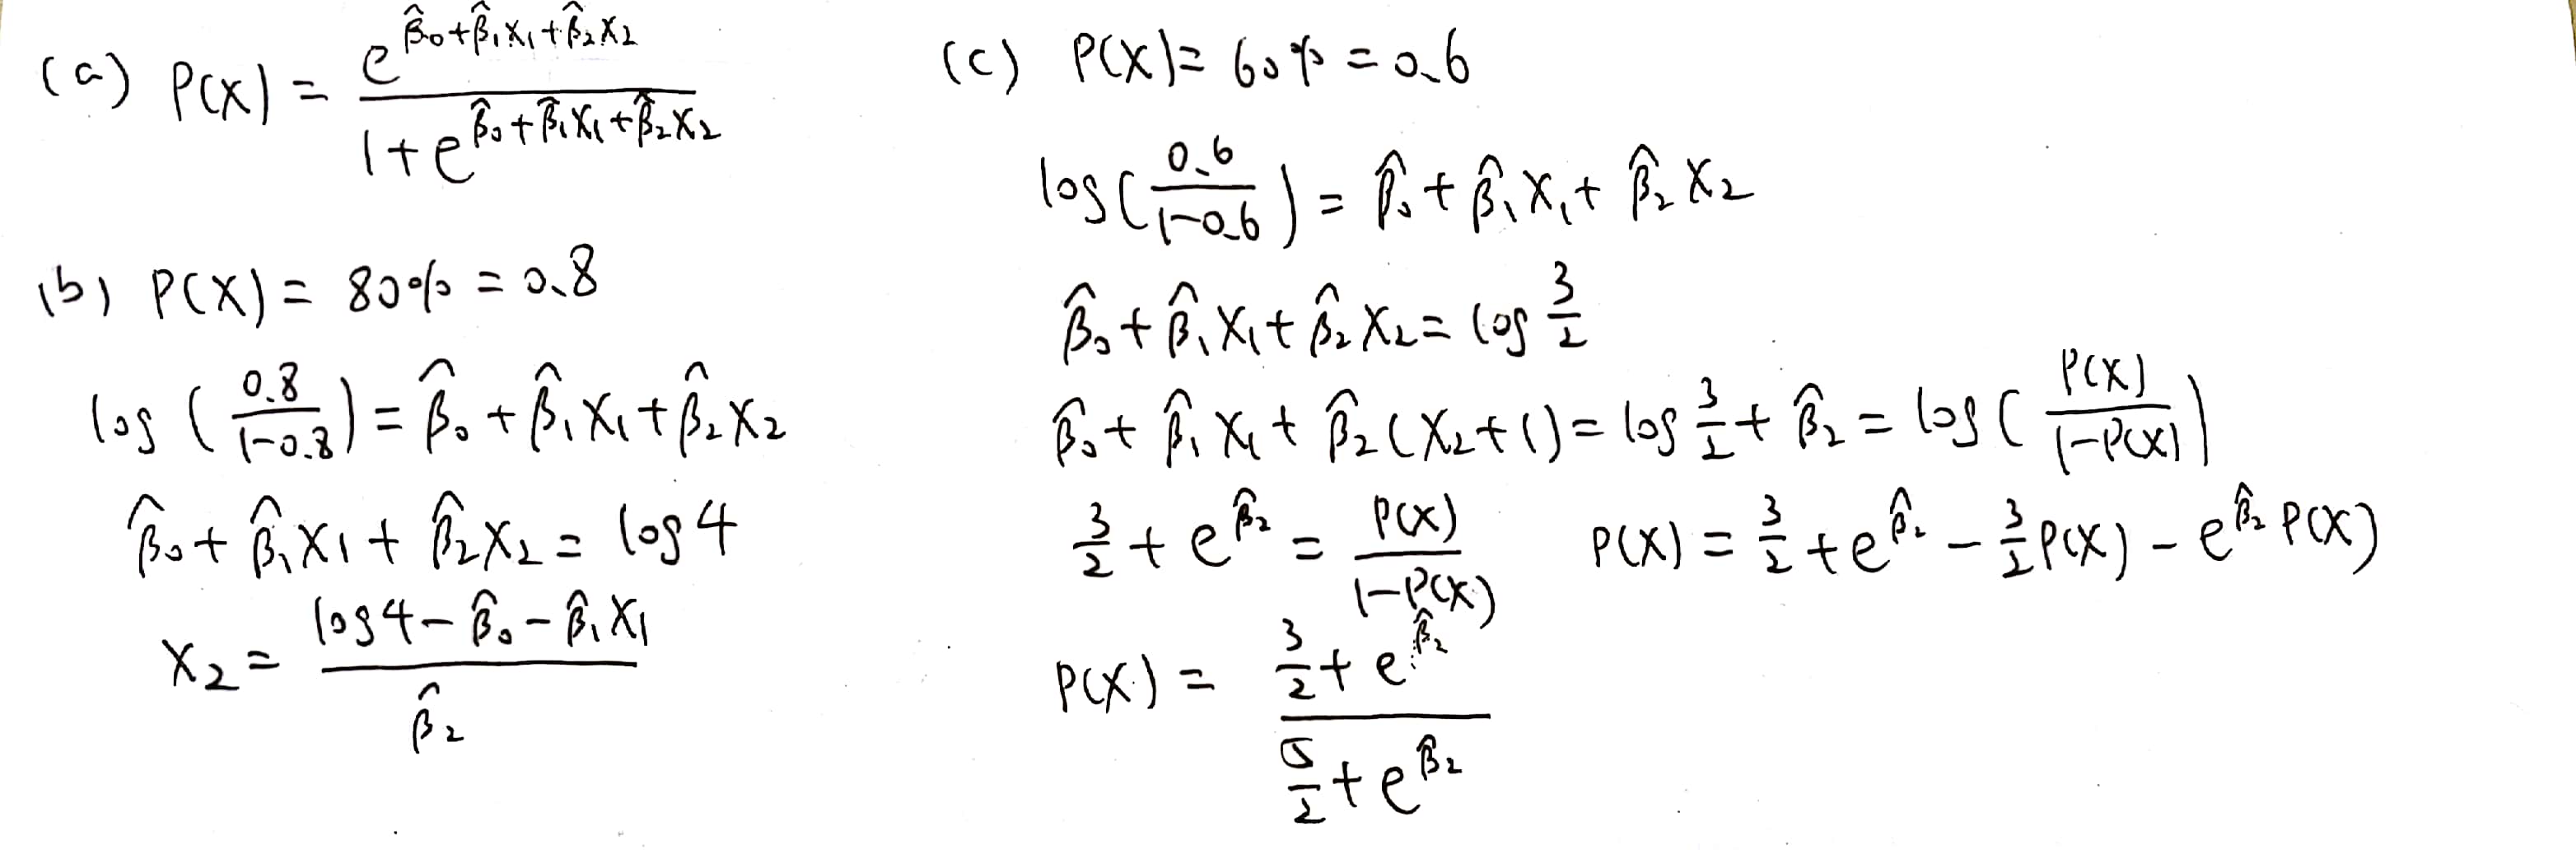 (a) P(X) = e^{β̂₀+β̂₁X₁+β̂₂X₂} / (1+e^{β̂₀+β̂₁X₁+β̂₂X₂})
(b) P(X) = 80% = 0.8
log(0.8/(1-0.8)) = β̂₀+β̂₁X₁+β̂₂X₂
β̂₀+β̂₁X₁+β̂₂X₂ = log4
X₂ = (log4-β̂₀-β̂₁X₁) / β̂₂
(c) P(X) = 60% = 0.6
log(0.6/(1-0.6)) = β̂₀+β̂₁X₁+β̂₂X₂
β̂₀+β̂₁X₁+β̂₂X₂ = log 3/2
β̂₀+β̂₁X₁+β̂₂(X₂+1) = log 3/2 + β̂₂ = log(P(X)/(1-P(X)))
3/2 + e^{β̂₂} = P(X)/(1-P(X)) P(X) = 3/2 + e^{β̂₂} - 3/2 P(X) - e^{β̂₂} P(X)
P(X) = (3/2 + e^{β̂₂}) / (5/2 + e^{β̂₂})